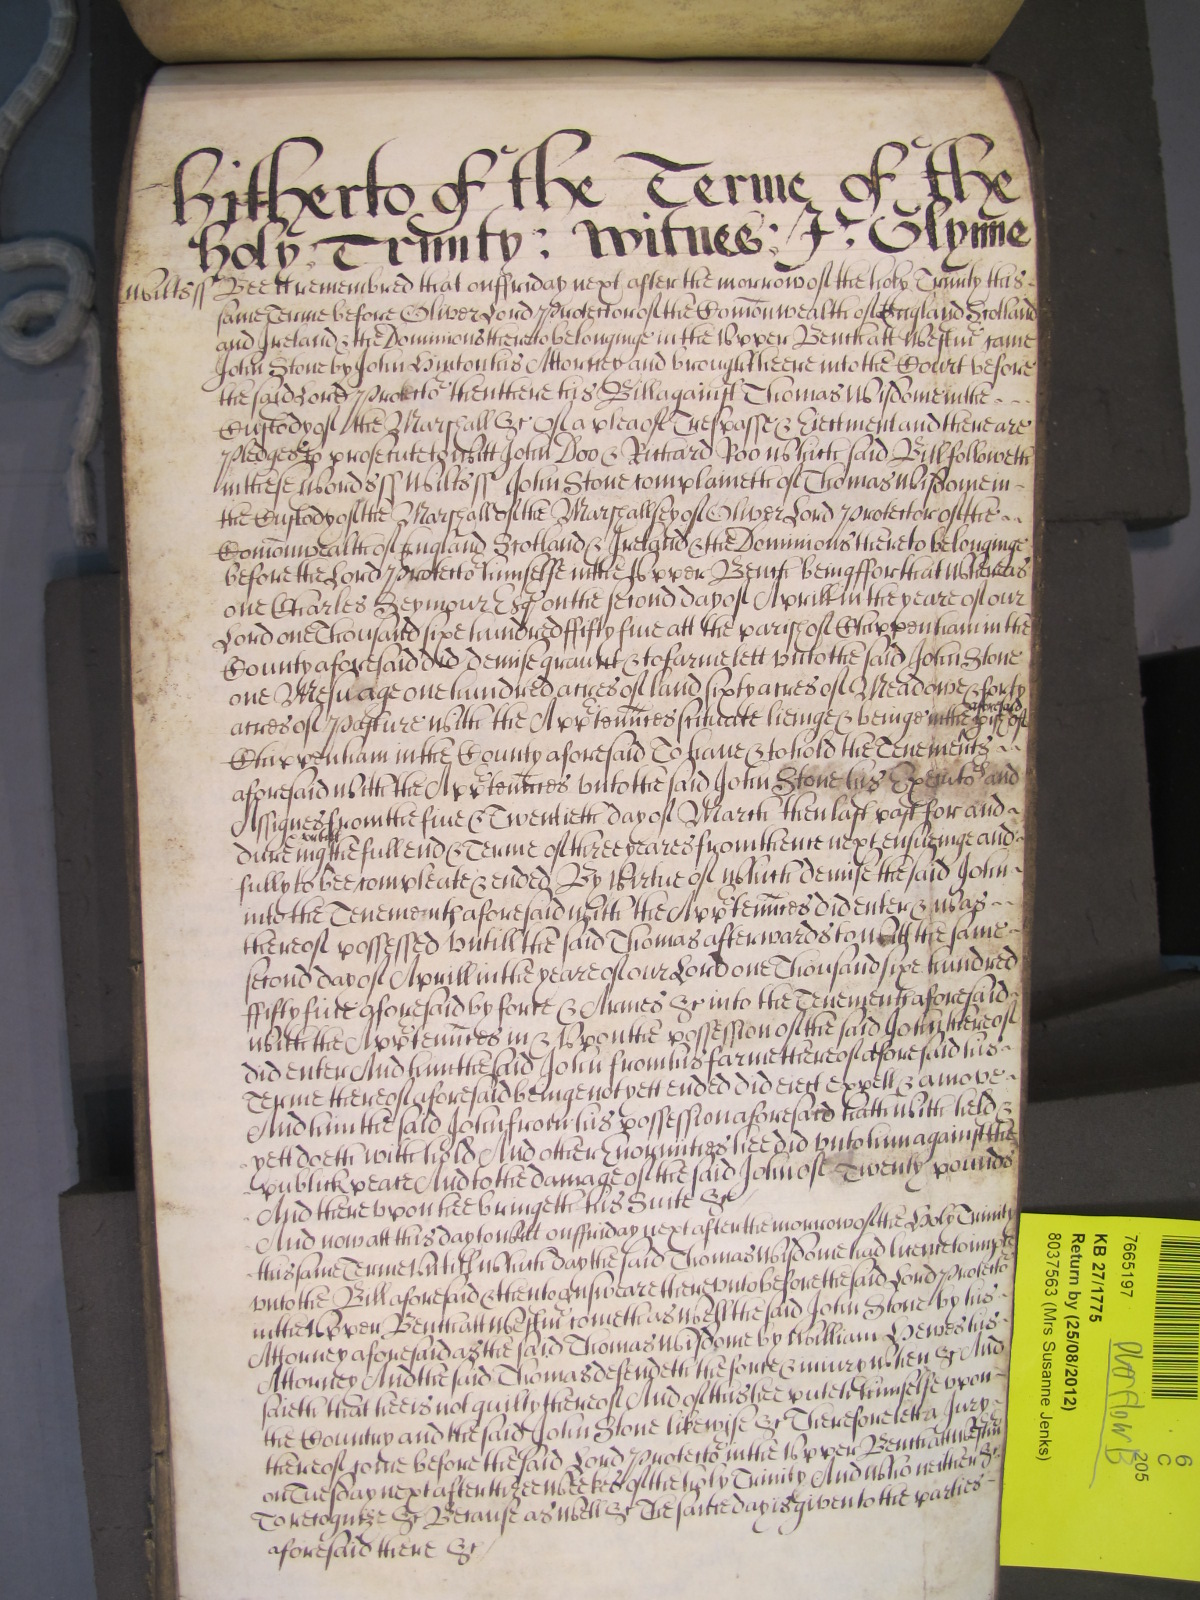 hitherto of the Terme of the
holy: Trinity: witnes: Jo: Glynne
Wiltss ss Bee it remembred that on ffriday next after the morrow of the holy Trinity this
same Terme before Oliver Lord Protector of the Comonwealth of England Scotland
and Ireland & the Dominions thereto belonginge in the Upper Bench att Westmr came
John Stone by John Hinton his Attorney and brought heere into the Court before
the said Lord Protector then there his Bill against Thomas Wisdome in the
Custody of the Marshall &c Of a plea of Trespasse & Ejectment and there are
Pledges to prosecute to witt John Doo & Richard Roo which said Bill followeth
in these words ss Wiltss ss John Stone complaineth of Thomas Wisdome in
the Custody of the Marshall of the Marshallsey of Oliver Lord Protector of the
Comonwealth of England Scotland & Ireland & the Dominions thereto belonginge
before the Lord Protector himselfe in the Upper Bench being ffor that whereas
one Charles Seymour Esqr on the second day of Aprill in the yeare of our
Lord one Thousand sixe hundred ffifty five att the parish of Chippenham in the
County aforesaid did demise graunt & to farme lett unto the said John Stone
one Mesuage one hundred acres of land sixty acres of Meadowe & forty
acres of Pasture with the Apptennces scituate lieinge & beinge in the pish aforesaid of
Chippenham in the County aforesaid To have & to hold the Tenements
aforesaid with the Apptennces unto the said John Stone his Executors and
Assignes from the five & Twentieth day of March then last past for and
dureing & untill the full end & Terme of three yeares from thence next ensueinge and
fully to bee compleate & ended By Virtue of which demise the said John
into the Tenements aforesaid with the Apptennces did enter & was
thereof possessed untill the said Thomas afterwards to witt the same
second day of Aprill in the yeare of our Lord one Thousand sixe hundred
ffifty five aforesaid by force & Armes &c into the Tenements aforesaid
with the Apptennces in & upon the possession of the said John thereof
did enter And him the said John from his farme thereof aforesaid his
Terme thereof aforesaid being not yett ended did eject expell & amove
And him the said John from his possession aforesaid hath with held &
yett doeth with hold And other Enormities hee did unto him against the
publick peace And to the damage of the said John of Twenty pounds
And thereupon hee bringeth his Suite &c
And now att this day to witt on ffriday next after the morrow of the Holy Trinity
this same Terme Untill which day the said Thomas Wisdome had licence to imple
unto the Bill aforesaid & then to answeare thereunto before the said Lord Protector
in the Upper Bench att Westmr cometh as well the said John Stone by his
Attorney aforesaid as the said Thomas Wisdome by William Hewes his
Attorney And the said Thomas defendeth the force & injury when &c And
saieth that hee is not guilty thereof And of this hee puteth himselfe upon
the Country and the said John Stone likewise &c Therefore lett a Jury
thereof come before the said Lord Protector in the Upper Bench att Westmr
on Tuesday next after three weekes of the holy Trinity And who neither &c
To recognize &c Because as well &c The same day is given to the parties
aforesaid there &c
7665197
KB 27/1775
Return by (25/08/2012)
8037563 (Mrs Susanne Jenks)
205
6
C